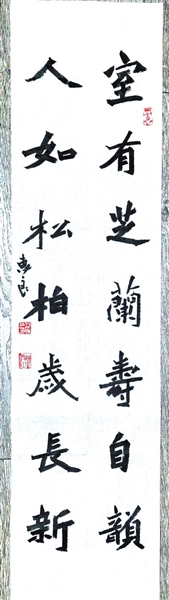 室有芝蘭壽自韻
人如松柏歲長新